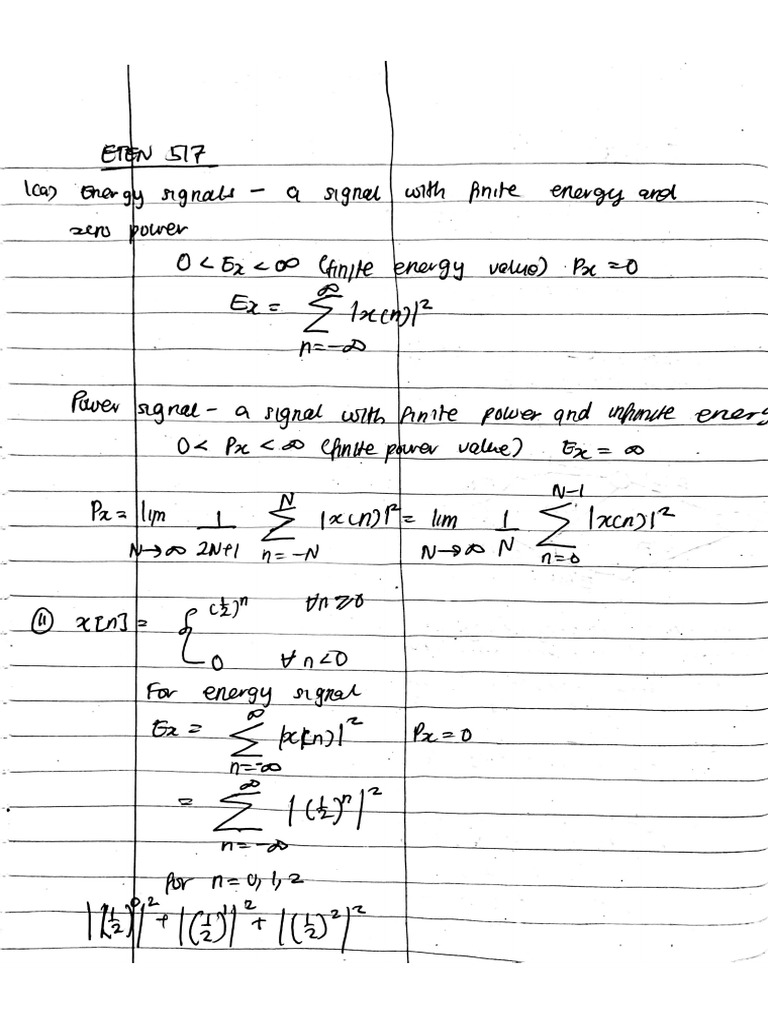 ETEN 517
1(a) Energy signals - a signal with finite energy and
zero power
0 < Ex < ∞ (finite energy value) Px = 0
Ex = ∞ ∑ n=-∞ |x(n)|²
Power signal - a signal with finite power and infinite energ
0 < Px < ∞ (finite power value) Ex = ∞
Px = lim N→∞ 1/2N+1 N ∑ n=-N |x(n)|² = lim N→∞ 1/N N-1 ∑ n=0 |x(n)|²
(ii) x[n] = { (1/2)ⁿ ∀n≥0
0 ∀n<0
For energy signal
Ex = ∞ ∑ n=-∞ |x(n)|² Px = 0
= ∞ ∑ n=-∞ |(1/2)ⁿ|²
for n = 0, 1, 2
|(1/2)⁰|² + |(1/2)¹|² + |(1/2)²|²